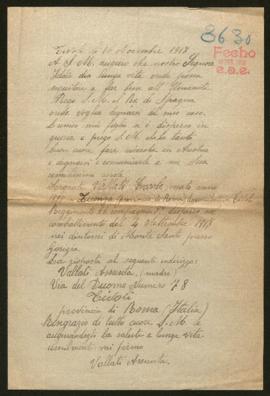 8630
Fecho
e.a.e.
Tivoli li 10 Novembre 1917
A S. M. auguro che nostro Signore
Iddio dia lunga vita onde possa
seguitare a far bene all'Umanità.
Prego S. M. il Re di Spagna
onde voglia degnarsi al mio caso.
L'unico mio figlio si è disperso in
guerra e prego S. M. di tanto
buon cuore fare ricerche in Austria
e degnarsi a comunicarle a me Sua
umilissima suddita
Vallati Ercole nato anno
provincia di Roma
Reggimento compagnia disperso nel
combattimento del 4 Settembre 1917
nei dintorni di Monte Santo presso
Gorizia.
La risposta al seguente indirizzo:
Vallati Assunta, (madre)
Via del Duomo Numero 78
Tivoli
provincia di Roma (Italia)
Ringrazio di tutto cuore S. M. le
augurandogli la salute e lunga vita
umilmente mi firmo
Vallati Assunta.